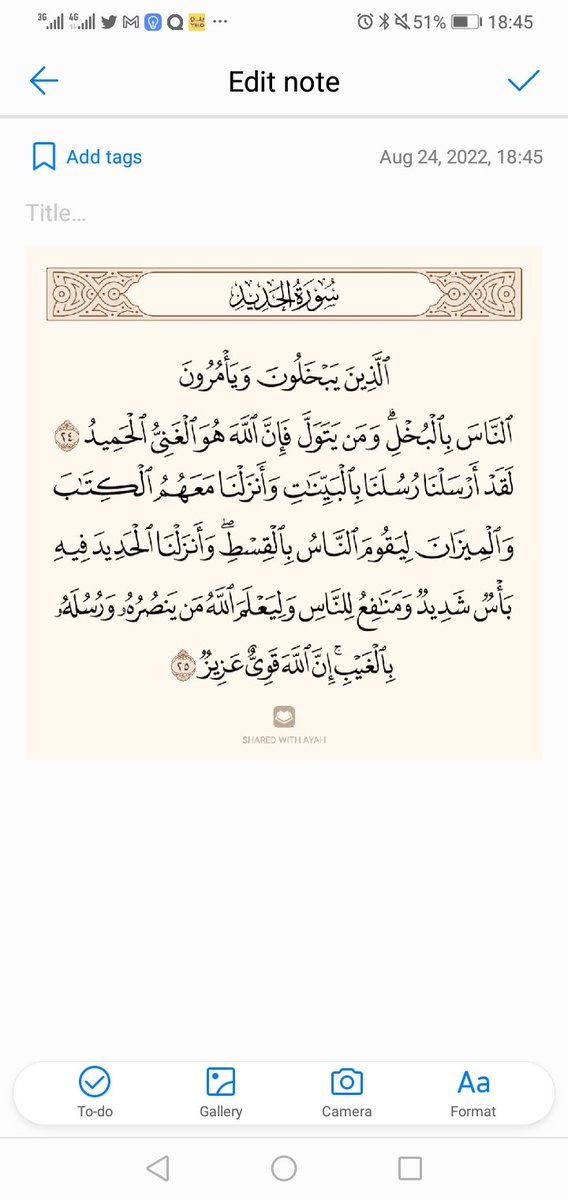 3G 4G 51% 18:45
Edit note
Add tags Aug 24, 2022, 18:45
Title...
سُورَةُ الحَدِيدِ
ٱلَّذِينَ يَبۡخَلُونَ وَيَأۡمُرُونَ
ٱلنَّاسَ بِٱلۡبُخۡلِۗ وَمَن يَتَوَلَّ فَإِنَّ ٱللَّهَ هُوَ ٱلۡغَنِيُّ ٱلۡحَمِيدُ ٢٤
لَقَدۡ أَرۡسَلۡنَا رُسُلَنَا بِٱلۡبَيِّنَٰتِ وَأَنزَلۡنَا مَعَهُمُ ٱلۡكِتَٰبَ
وَٱلۡمِيزَانَ لِيَقُومَ ٱلنَّاسُ بِٱلۡقِسۡطِۖ وَأَنزَلۡنَا ٱلۡحَدِيدَ فِيهِ
بَأۡسٞ شَدِيدٞ وَمَنَٰفِعُ لِلنَّاسِ وَلِيَعۡلَمَ ٱللَّهُ مَن يَنصُرُهُۥ وَرُسُلَهُۥ
بِٱلۡغَيۡبِۚ إِنَّ ٱللَّهَ قَوِيٌّ عَزِيزٞ ٢٥
SHARED WITH AYAH
To-do Gallery Camera Format